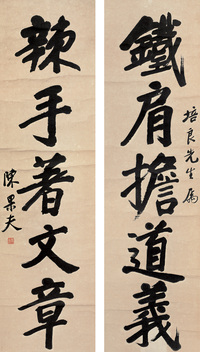 培良先生属
鐵肩擔道義
辣手著文章
陳果夫